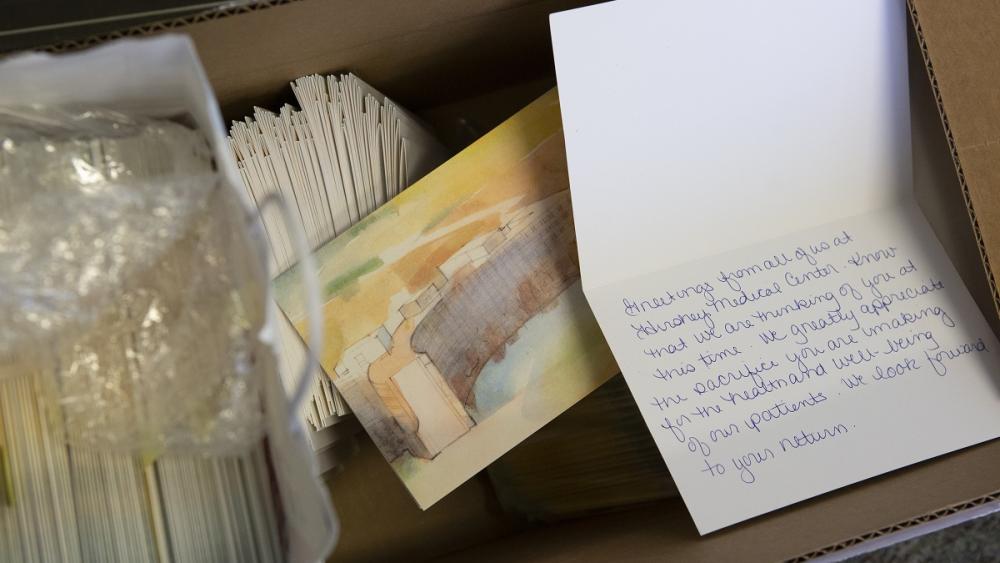 Greetings from all of us at
Hershey Medical Center. Know
that we are thinking of you at
this time. We greatly appreciate
the sacrifice you are making
for the health and well-being
of our patients. We look forward
to your return.